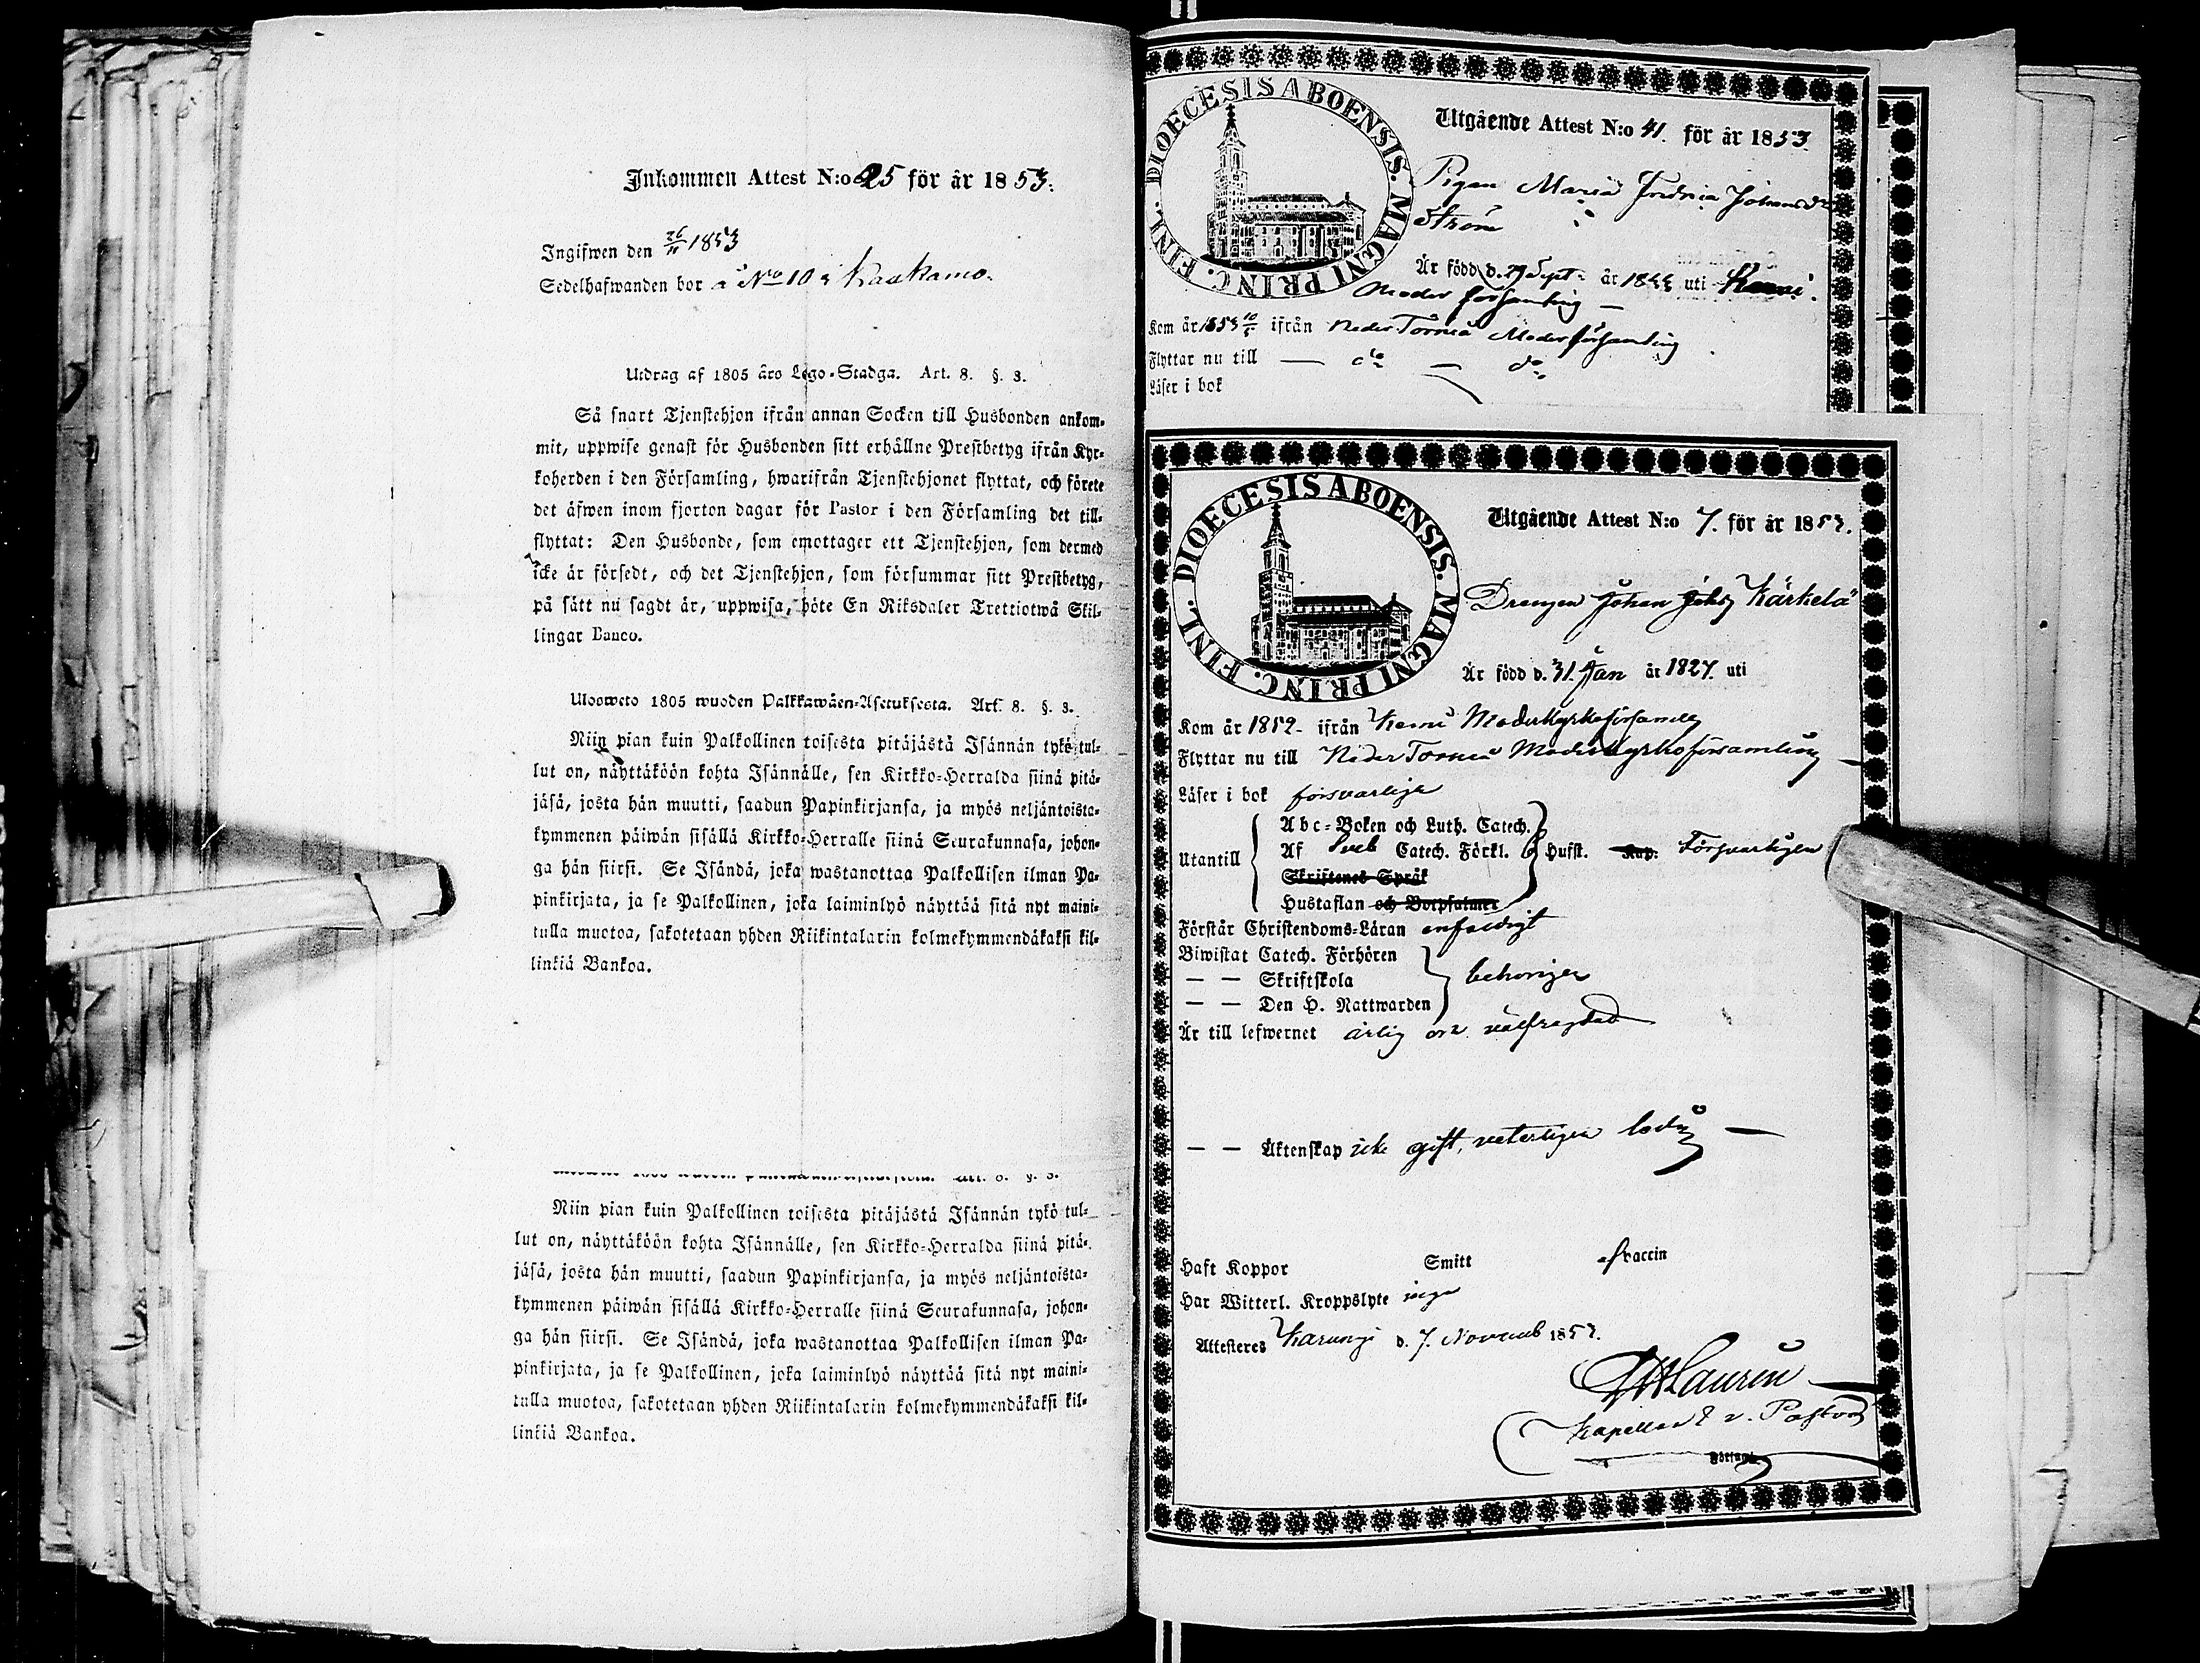 Inkommen Attest N:o 25 för år 1853.
Ingifwen den 26/11 1853
Sedelhafwanden bor å No 10 i Kaakamo.
Utdrag af 1805 års Lego-Stadga. Art. 8. §. 3.
Så snart Tjenstehjon ifrån annan Socken till Husbonden ankom-
mit, uppwise genast för Husbonden sitt erhållne Prestbetyg ifrån Kyr-
koherden i den Församling, hwarifrån Tjenstehjonet flyttat, och förete
det äfwen inom fjorton dagar för Pastor i den Församling det till-
flyttat: Den Husbonde, som emottager ett Tjenstehjon, som dermed
icke är försedt, och det Tjenstehjon, som försummar sitt Prestbetyg,
på sätt nu sagdt är, uppwisa, böte En Riksdaler Trettiotwå Skil-
lingar Banco.
Ulosweto 1805 wuoden Palkkawäen-Asetuksesta. Art. 8. §. 3.
Niin pian kuin Palkollinen toisesta pitäjästä Isännän tykö tul-
lut on, näyttäköön kohta Isännälle, sen Kirkko-Herralda siinä pitä-
jäsä, josta hän muutti, saadun Papinkirjansa, ja myös neljäntoista-
kymmenen päiwän sisällä Kirkko-Herralle siinä Seurakunnasa, johon-
ga hän siirsi. Se Isändä, joka wastanottaa Palkollisen ilman Pa-
pinkirjata, ja se Palkollinen, joka laiminlyö näyttää sitä nyt maini-
tulla muotoa, sakotetaan yhden Riikintalarin kolmekymmendäkaksi kil-
linkiä Bankoa.
Niin pian kuin Palkollinen toisesta pitäjästä Isännän tykö tul-
lut on, näyttäköön kohta Isännälle, sen Kirkko-Herralda siinä pitä-
jäsä, josta hän muutti, saadun Papinkirjansa, ja myös neljäntoista-
kymmenen päiwän sisällä Kirkko-Herralle siinä Seurakunnasa, johon-
ga hän siirsi. Se Isändä, joka wastanottaa Palkollisen ilman Pa-
pinkirjata, ja se Palkollinen, joka laiminlyö näyttää sitä nyt maini-
tulla muotoa, sakotetaan yhden Riikintalarin kolmekymmendäkaksi kil-
linkiä Bankoa.
DIOECESIS ABOENSIS. MAGNI PRINC. FINL.
Utgående Attest N:o 41. för år 1853.
Pigan Maria Johansdr
Ström
Är född d. 29 Sept. år 1833 uti Kemi.
Moder församling
Kom år 1853 ifrån Neder Torneå Moderförsamling
Flyttar nu till — do — do
Läser i bok
DIOECESIS ABOENSIS. MAGNI PRINC. FINL.
Utgående Attest N:o 7. för år 1853.
Drengen Johan Kärkelä
Är född d. 31. Jan år 1827. uti
Kom år 1852 ifrån Kemi Moderkyrkoförsamlg
Flyttar nu till Neder Torneå Moderkyrkoförsamling —
Läser i bok försvarligt
Abc-Boken och Luth. Catech.
Utantill Af Sveb Catech. Förkl. Husst. Kap: Försvarligen
Skriftenes Språk
Hustaflan och Botpsalmer
Förstår Christendoms-Läran enfaldigt
Biwistat Catech. Förhören
— — Skriftskola behörigen
— — Den H. Nattwarden
Är till lefwernet ärlig och välfrejdad
— — Äktenskap icke gift, veterligen ledig —
Haft Koppor Smitt vaccin
Har Witterl. Kroppslyte inga
Attesteres Karungi d. 7. Novemb 1853.
Laurin
Kapellan & v. Pastor
Församl.